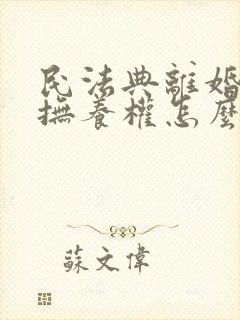 民法典離婚
撫養權怎麼
蘇文偉